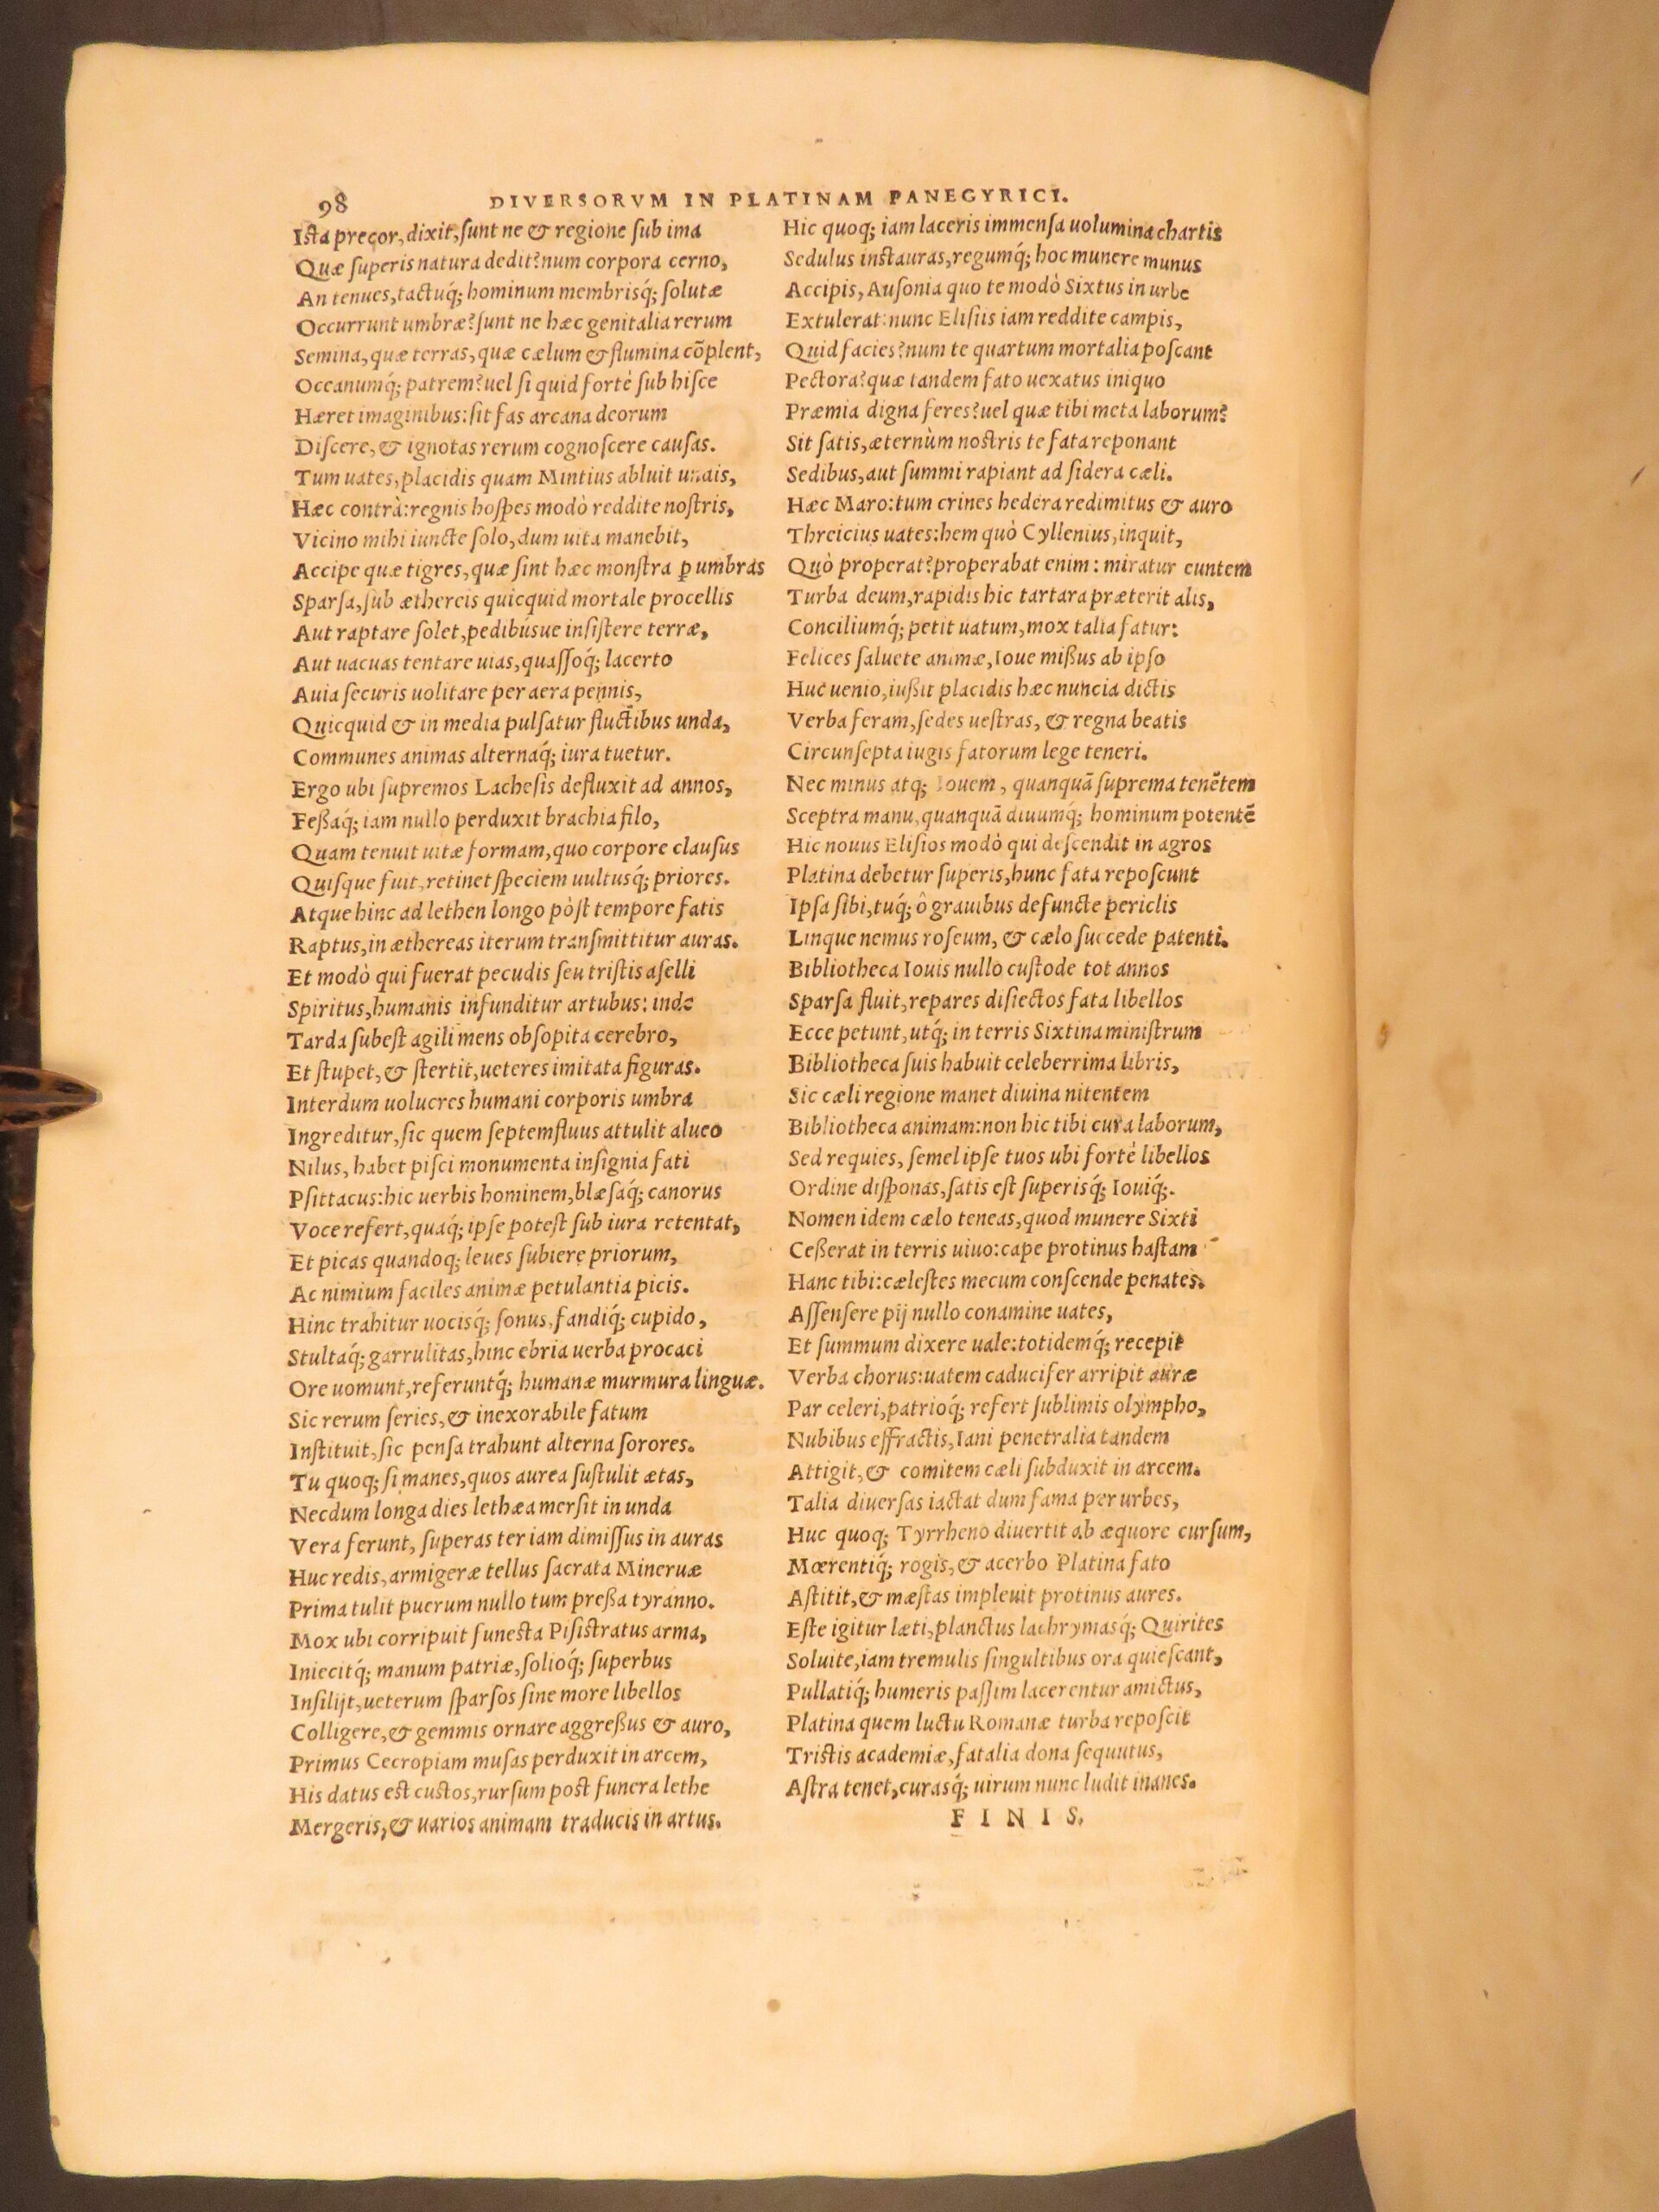 98 DIVERSORVM IN PLATINAM PANEGYRICI.
Ista precor, dixit, ſunt ne & regione ſub ima
Quæ ſuperis natura dedit? num corpora cerno,
An tenues, tactuq́; hominum membrisq́; ſolutæ
Occurrunt umbræ? ſunt ne hæc genitalia rerum
Semina, quæ terras, quæ cælum & flumina cõplent,
Oceanumq́; patrem? uel ſi quid fortè ſub hiſce
Hæret imaginibus: ſit fas arcana deorum
Diſcere, & ignotas rerum cognoſcere cauſas.
Tum uates, placidis quam Mintius abluit undis,
Hæc contrà: regnis hoſpes modò reddite noſtris,
Vicino mihi iuncte ſolo, dum uita manebit,
Accipe quæ tigres, quæ ſint hæc monſtra ꝑ umbras
Sparſa, ſub æthereis quicquid mortale procellis
Aut raptare ſolet, pedibúsue inſiſtere terræ,
Aut uacuas tentare uias, quaſſoq́; lacerto
Auia ſecuris uolitare per aera pennis,
Quicquid & in media pulſatur fluctibus unda,
Communes animas alternaq́; iura tuetur.
Ergo ubi ſupremos Lacheſis defluxit ad annos,
Feßaq́; iam nullo perduxit brachia filo,
Quam tenuit uitæ formam, quo corpore clauſus
Quiſque fuit, retinet ſpeciem uultusq́; priores.
Atque hinc ad lethen longo pòſt tempore fatis
Raptus, in æthereas iterum tranſmittitur auras.
Et modò qui fuerat pecudis ſeu triſtis aſelli
Spiritus, humanis infunditur artubus: inde
Tarda ſubeſt agili mens obſopita cerebro,
Et ſtupet, & ſtertit, ueteres imitata figuras.
Interdum uolucres humani corporis umbra
Ingreditur, ſic quem ſeptemfluus attulit alueo
Nilus, habet piſci monumenta inſignia fati
Pſittacus: hic uerbis hominem, blæſaq́; canorus
Voce refert, quaq́; ipſe poteſt ſub iura retentat,
Et picas quandoq; leues ſubiere priorum,
Ac nimium faciles animæ petulantia picis.
Hinc trahitur uocisq́; ſonus, fandiq́; cupido,
Stultaq́; garrulitas, hinc ebria uerba procaci
Ore uomunt, referuntq́; humanæ murmura linguæ.
Sic rerum ſeries, & inexorabile fatum
Inſtituit, ſic penſa trahunt alterna ſorores.
Tu quoq; ſi manes, quos aurea ſuſtulit ætas,
Necdum longa dies lethæa merſit in unda
Vera ferunt, ſuperas ter iam dimiſſus in auras
Huc redis, armigeræ tellus ſacrata Mineruæ
Prima tulit puerum nullo tum preßa tyranno.
Mox ubi corripuit funeſta Piſiſtratus arma,
Iniecitq́; manum patriæ, ſolioq́; ſuperbus
Inſilijt, ueterum ſparſos ſine more libellos
Colligere, & gemmis ornare aggreßus & auro,
Primus Cecropiam muſas perduxit in arcem,
His datus eſt cuſtos, rurſum poſt funera lethe
Mergeris, & uarios animam traducis in artus.
Hic quoq; iam laceris immenſa uolumina chartis
Sedulus inſtauras, regumq́; hoc munere munus
Accipis, Auſonia quo te modò Sixtus in urbe
Extulerat: nunc Eliſiis iam reddite campis,
Quid facies? num te quartum mortalia poſcant
Pectora? quæ tandem fato uexatus iniquo
Præmia digna feres? uel quæ tibi meta laborum?
Sit ſatis, æternùm noſtris te fata reponant
Sedibus, aut ſummi rapiant ad ſidera cæli.
Hæc Maro: tum crines hedera redimitus & auro
Threicius uates: hem quò Cyllenius, inquit,
Quò properat? properabat enim: miratur euntem
Turba deum, rapidis hic tartara præterit alis,
Conciliumq́; petit uatum, mox talia fatur:
Felices ſaluete animæ, Ioue mißus ab ipſo
Huc uenio, iußit placidis hæc nuncia dictis
Verba feram, ſedes ueſtras, & regna beatis
Circunſepta iugis fatorum lege teneri.
Nec minus atq; Iouem, quanquã ſuprema tenẽtem
Sceptra manu, quanquã diuumq́; hominum potentẽ
Hic nouus Eliſios modò qui deſcendit in agros
Platina debetur ſuperis, hunc fata repoſcunt
Ipſa ſibi, tuq́; ô grauibus defuncte periclis
Linque nemus roſeum, & cælo ſuccede patenti.
Bibliotheca Iouis nullo cuſtode tot annos
Sparſa fluit, repares diſiectos fata libellos
Ecce petunt, utq́; in terris Sixtina miniſtrum
Bibliotheca ſuis habuit celeberrima libris,
Sic cæli regione manet diuina nitentem
Bibliotheca animam: non hic tibi cura laborum,
Sed requies, ſemel ipſe tuos ubi fortè libellos
Ordine diſponas, ſatis eſt ſuperisq́; Iouiq́;.
Nomen idem cælo teneas, quod munere Sixti
Ceßerat in terris uiuo: cape protinus haſtam
Hanc tibi: cæleſtes mecum conſcende penates.
Aſſenſere pij nullo conamine uates,
Et ſummum dixere uale: totidemq́; recepit
Verba chorus: uatem caducifer arripit auræ
Par celeri, patrioq́; refert ſublimis olympho,
Nubibus effractis, Iani penetralia tandem
Attigit, & comitem cæli ſubduxit in arcem.
Talia diuerſas iactat dum fama per urbes,
Huc quoq; Tyrrheno diuertit ab æquore curſum,
Mœrentiq́; rogis, & acerbo Platina fato
Aſtitit, & mæſtas impleuit protinus aures.
Eſte igitur læti, planctus lachrymasq́; Quirites
Soluite, iam tremulis ſingultibus ora quieſcant,
Pullatiq́; humeris paſſim lacerentur amictus,
Platina quem luctu Romanæ turba repoſcit
Triſtis academiæ, fatalia dona ſequutus,
Aſtra tenet, curasq́; uirum nunc ludit inanes.
FINIS.